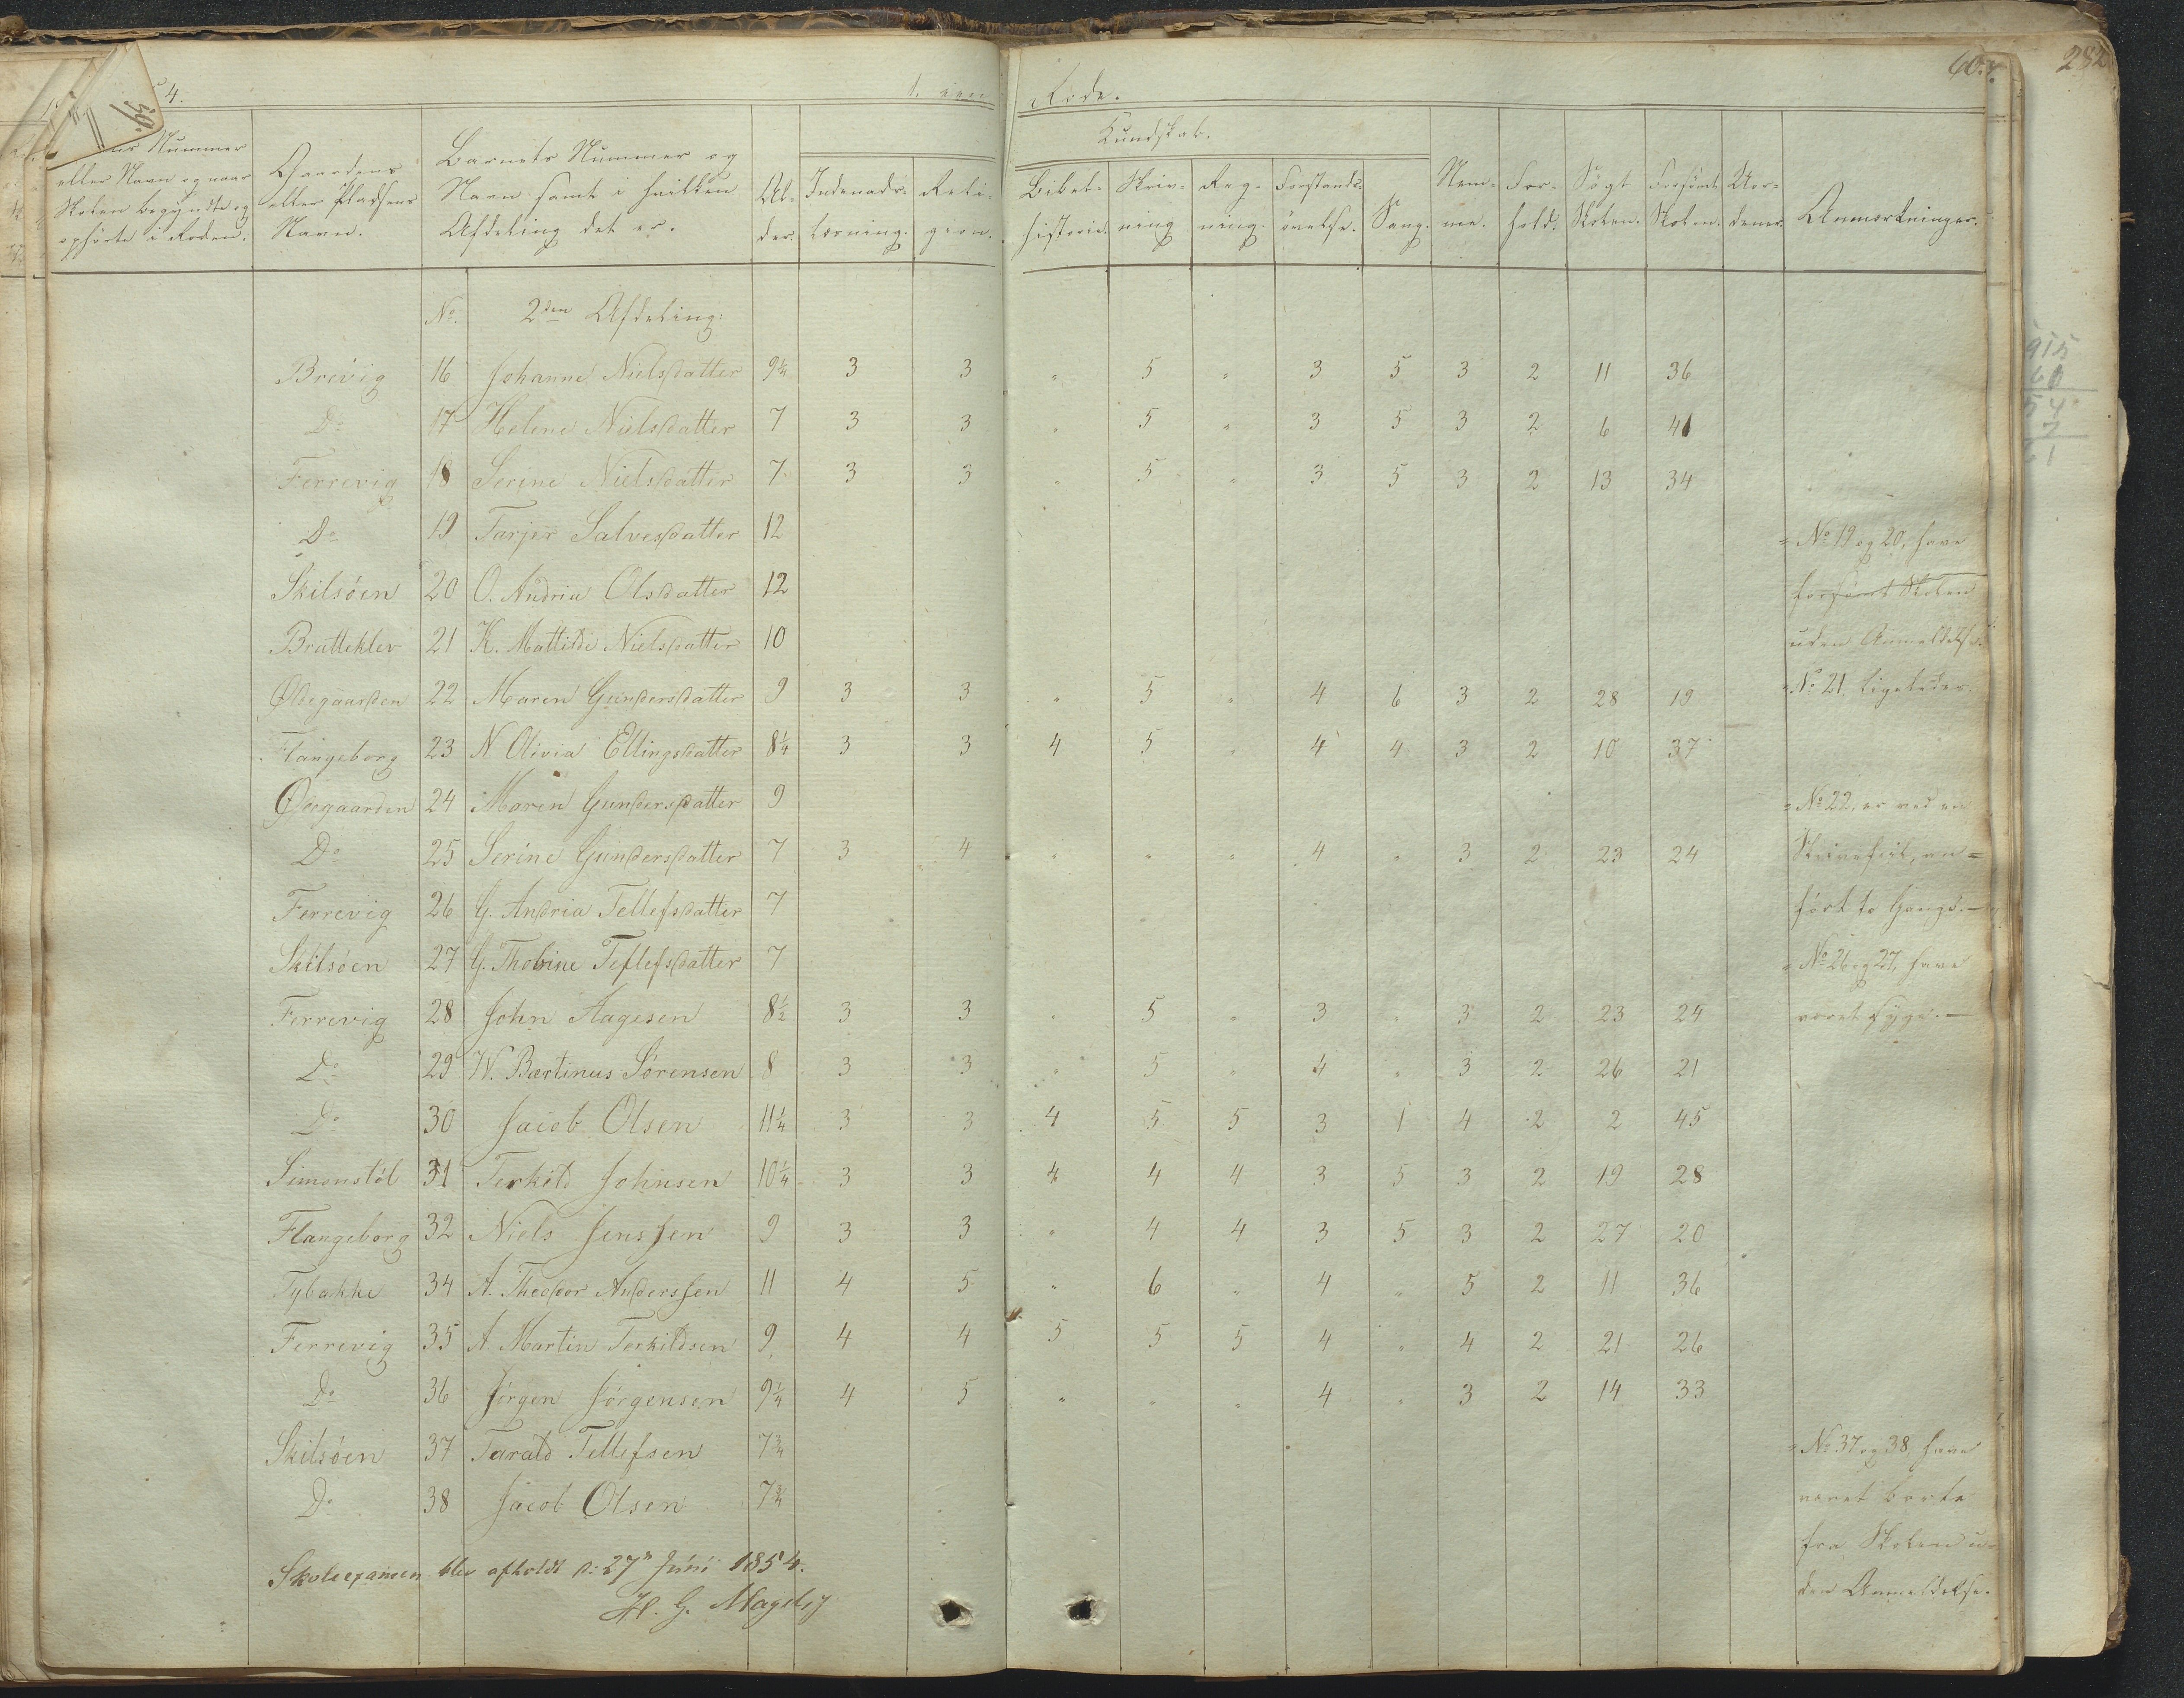 4. 1. een Rode. 60. 282
39.
Nummer
eller Navn og naar
Skolen begyndte og
ophørte i Roden.
Gaardens
eller Pladsens
Navn.
Barnets Nummer og
Navn samt i hvilken
Afdeling det er.
Al-
der.
Indenads-
læsning.
Reli-
gion.
Kundskab.
Bibel-
historie.
Skriv-
ning
Reg-
ning.
Forstands-
øvelse.
Sang.
Nem-
me.
For-
hold.
Søgt
Skolen.
Forsømt
Skolen.
Anmærkninger.
No. 2den Afdeling:
Brevig 16 Johanne Nielsdatter 9¼ 3 3 " 5 " 3 5 3 2 11 36
Do 17 Helene Nielsdatter 7 3 3 " 5 " 3 5 3 2 6 41
Ferrevig 18 Serine Nielsdatter 7 3 3 " 5 " 3 5 3 2 13 34
Do 19 Tarjer Salvesdatter 12 = No 19 og 20, have
Skilsöen 20 O. Andria Olsdatter 12 forsømt Skolen
Bratteklev 21 K. Mattilde Nielsdatter 10 uden Anmeldelse.
Ødegaarden 22 Maren Gundersdatter 9 3 3 " 5 " 4 6 3 2 28 19 = No 21, ligeledes.
Flangeborg 23 N Olivia Ellingsdatter 8¼ 3 3 4 5 " 4 4 3 2 10 37
Ødegaarden 24 Maren Gundersdatter 9 = No 22, er ved en
Do 25 Serine Gundersdatter 7 3 4 " " " 4 " 3 2 23 24 Skrivefeil, an=
Ferrevig 26 G. Andria Tellefsdatter 7 ført to Gange.—
Skilsöen 27 G. Thobine Teflefsdatter 7 = No 26 og 27, have
Ferrevig 28 John Aagesen 8½ 3 3 " 5 " 3 " 3 2 23 24 været syge.—
Do 29 W. Bærtinus Sörensen 8 3 3 " 5 " 4 " 3 2 26 21
Do 30 Jacob Olsen 11¼ 3 3 4 5 5 3 1 4 2 2 45
Simonstöl 31 Terkild Johnsen 10¼ 3 3 4 4 4 3 5 3 2 19 28
Flangeborg 32 Niels Jenssen 9 3 3 " 4 4 3 5 3 2 27 20
Tybakke 34 A. Theodor Anderssen 11 4 5 " 6 " 4 " 5 2 11 36
Ferrevig 35 A. Martin Terkildsen 9 4 4 5 5 5 4 " 4 2 21 26
Do 36 Jörgen Jörgensen 9¼ 4 5 " " " 4 " 3 2 14 33
Skilsöen 37 Tarald Tellefsen 7¾ = No 37 og 38 have
Do 38 Jacob Olsen 7¾ været borte
fra Skolen u-
den Anmeldelse.
Skoleexamen blev afholdt d: 27de Juni 1854.